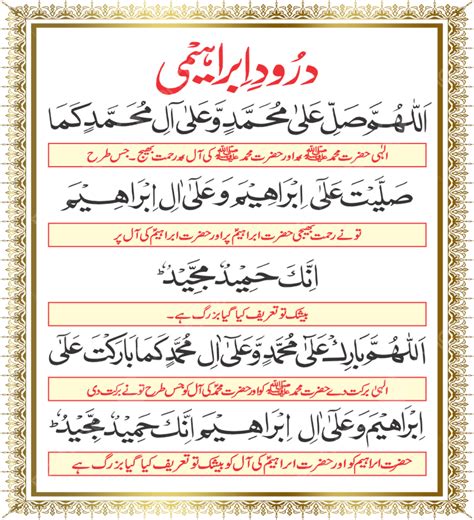 درُودِ ابراہیمی
اَللّٰهُمَّ صَلِّ عَلٰى مُحَمَّدٍ وَّعَلٰٓى اٰلِ مُحَمَّدٍ كَمَا
الٰہی حضرت محمد ﷺ اور حضرت محمد ﷺ کی آل پر رحمت بھیج۔ جس طرح
صَلَّيْتَ عَلٰٓى اِبْرَاهِيْمَ وَعَلٰٓى اٰلِ اِبْرَاهِيْمَ
تو نے رحمت بھیجی حضرت ابراہیمؑ پر اور حضرت ابراہیمؑ کی آل پر
اِنَّكَ حَمِيْدٌ مَّجِيْدٌ ؕ
بیشک تو تعریف کیا گیا بزرگ ہے۔
اَللّٰهُمَّ بَارِكْ عَلٰى مُحَمَّدٍ وَّعَلٰٓى اٰلِ مُحَمَّدٍ كَمَا بَارَكْتَ عَلٰٓى
الٰہی برکت دے حضرت محمد ﷺ کو اور حضرت محمد ﷺ کی آل کو جس طرح تو نے برکت دی
اِبْرَاهِيْمَ وَعَلٰٓى اٰلِ اِبْرَاهِيْمَ اِنَّكَ حَمِيْدٌ مَّجِيْدٌ ؕ
حضرت ابراہیمؑ کو اور حضرت ابراہیمؑ کی آل کو بیشک تو تعریف کیا گیا بزرگ ہے